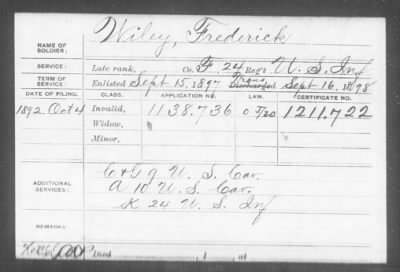 Wiley, Frederick
NAME OF SOLDIER:
SERVICE: Late rank, Co. F, 24 Reg't U. S. Inf
TERM OF SERVICE: Enlisted Sept 15, 189 Trans Discharged Sept 16, 1898
DATE OF FILING. CLASS. APPLICATION NO. LAW. CERTIFICATE NO.
1892 Oct 4 Invalid, 1138.736 1211.722
Widow,
Minor,
ADDITIONAL SERVICES:
C & G 9 U. S. Cav.
A 10 U. S. Cav.
K 24 U. S. Inf
REMARKS:
Died , 1 , at